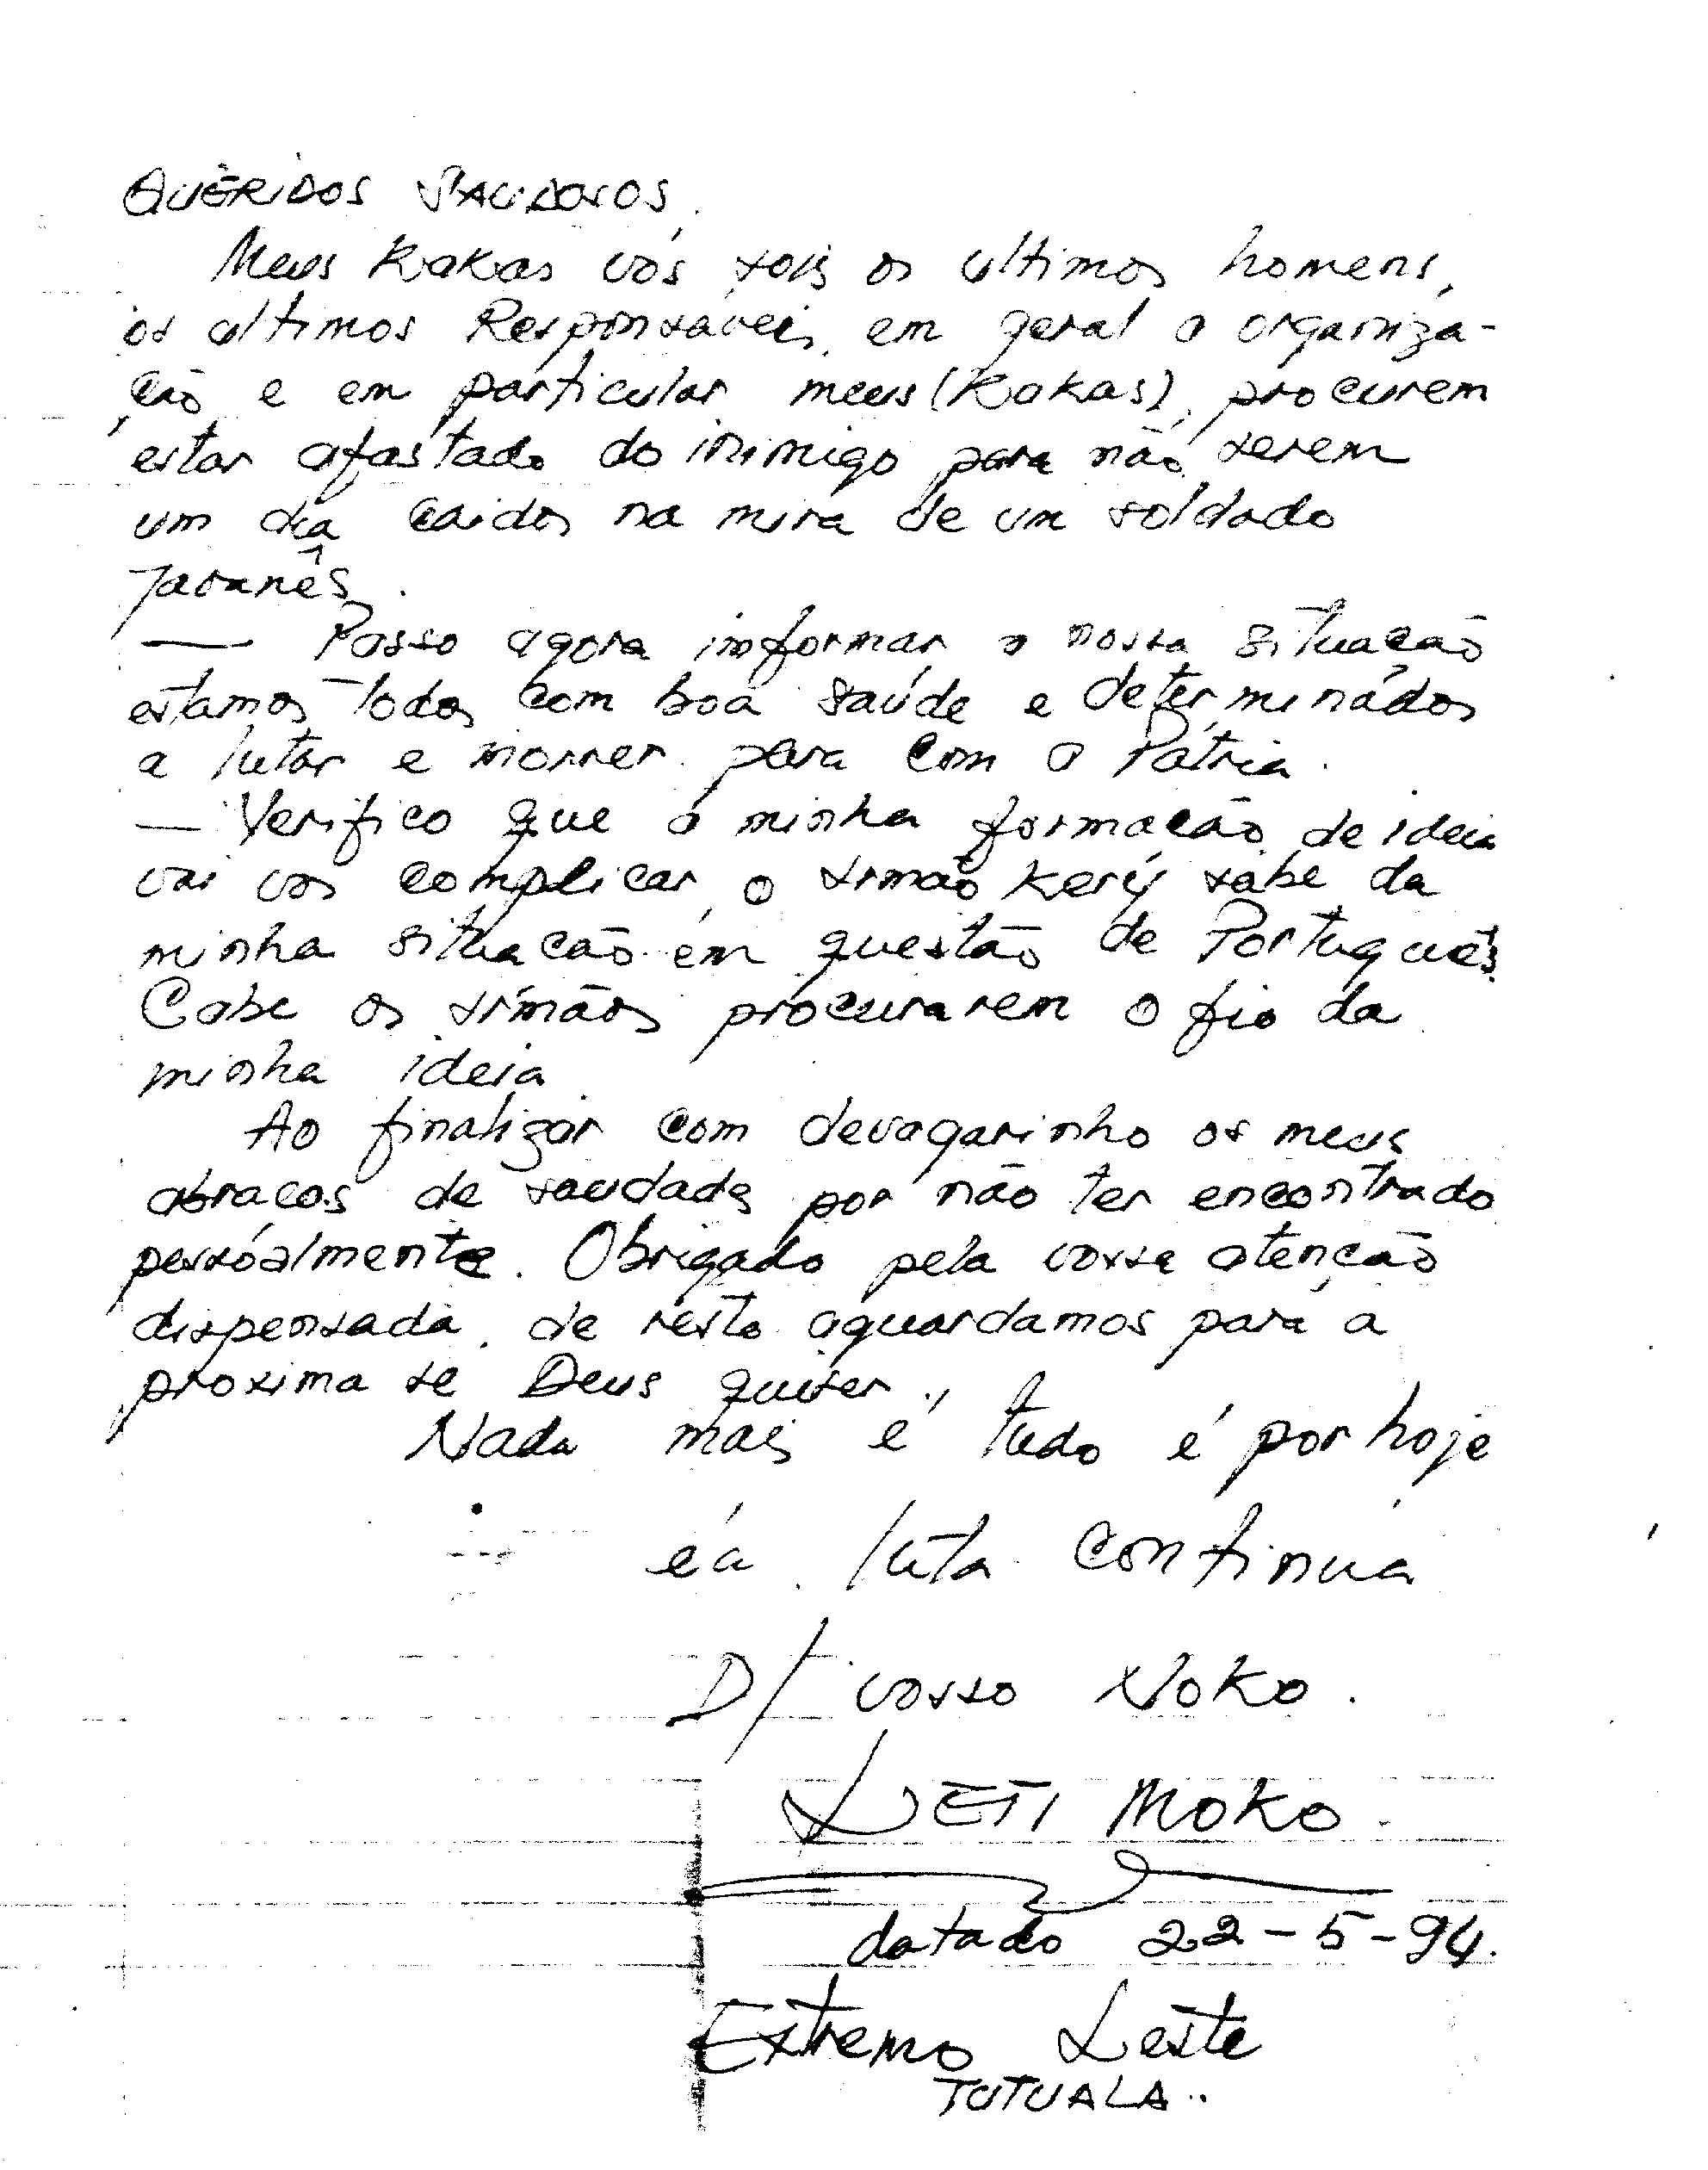 QUÉRIDOS SAUDOSOS,
Meus Kakas vós sois os ultimos homens,
os ultimos Responsáveis, em geral a organiza-
ção e em particular meus (Kakas), procurem
estar afastado do inimigo para não serem
um dia caidos na mira de um soldado
Javanês.
— Passo agora imformar a nossa situação
estamos todos com boa saúde e determinádos
a lutar e morrer para com a Pátria.
— Verifico que a minha formação de ideia
vai vos complicar, o irmão Kery sabe da
minha situação em questão de Português.
Cabe os irmãos procurarem o fio da
minha ideia
Ao finalizar com devagarinho os meus
abraços de saudade por não ter encontrado
pessóalmente. Obrigado pela vossa atenção
dispensada, de resto aguardamos para a
proxima se Deus quiser.,
Nada mais é tudo é por hoje
é a luta continua
D/ vosso Noko.
LETI MOKO.
datado 22-5-94.
Extremo Leste
TUTUALA..